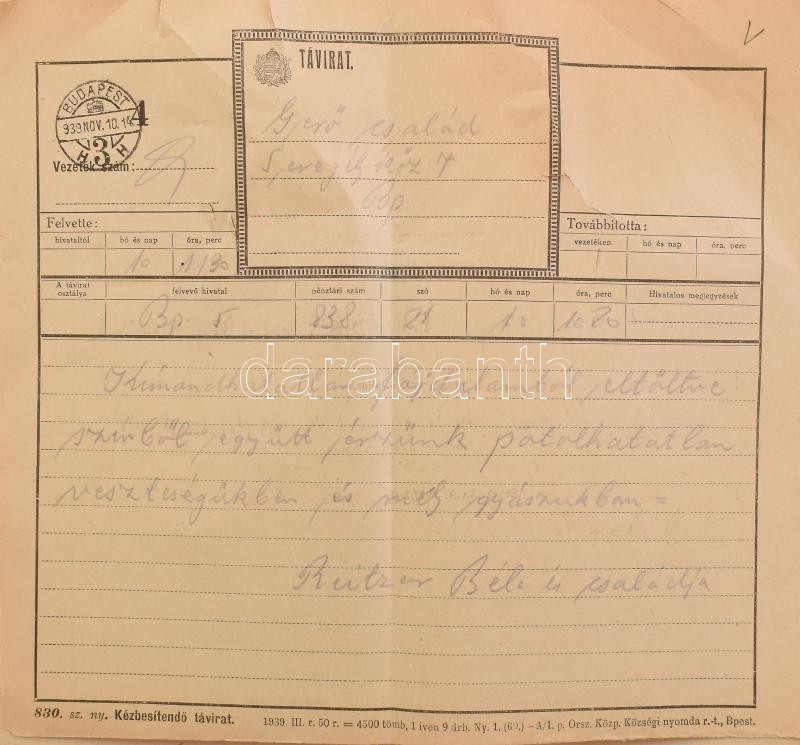 TÁVIRAT.
BUDAPEST 4
939 NOV. 10. 14
H 3 H
Vezeték szám:
Gerő család
Bp
Felvette:
hivataltól hó és nap óra, perc
10 1130
Továbbította:
vezetéken hó és nap óra, perc
A távirat osztálya felvevő hivatal pénztári szám szó hó és nap óra, perc Hivatalos megjegyzések
Bp. 5 838 21 10 1020
Kimondhatatlan fájdalomtól eltöltve
szívből együtt érzünk pótolhatatlan
veszteségükben és mély gyászukban =
Reitzer Béla és családja
darabanth
830. sz. ny. Kézbesítendő távirat. 1939. III. r. 50 r. = 4500 tömb, 1 iven 9 drb. Ny. 1. (60.) – A/1. p. Orsz. Közp. Községi nyomda r.-t., Bpest.